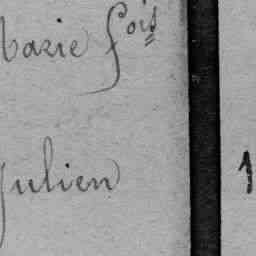 Marie fois
Julien 1